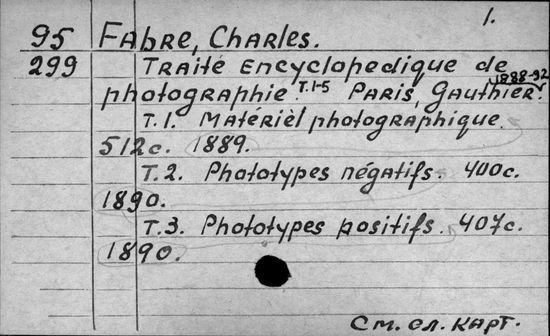 1.
95 Fabre, Charles.
299 Traité encyclopedique de
1888-92
photographie. T.1-5 Paris, Gauthier.
T.1. Matérièl photographique.
512c. 1889.
T.2. Phototypes négatifs. 400c.
1890.
T.3. Phototypes positifs. 407c.
1890.
См. сл. карт.